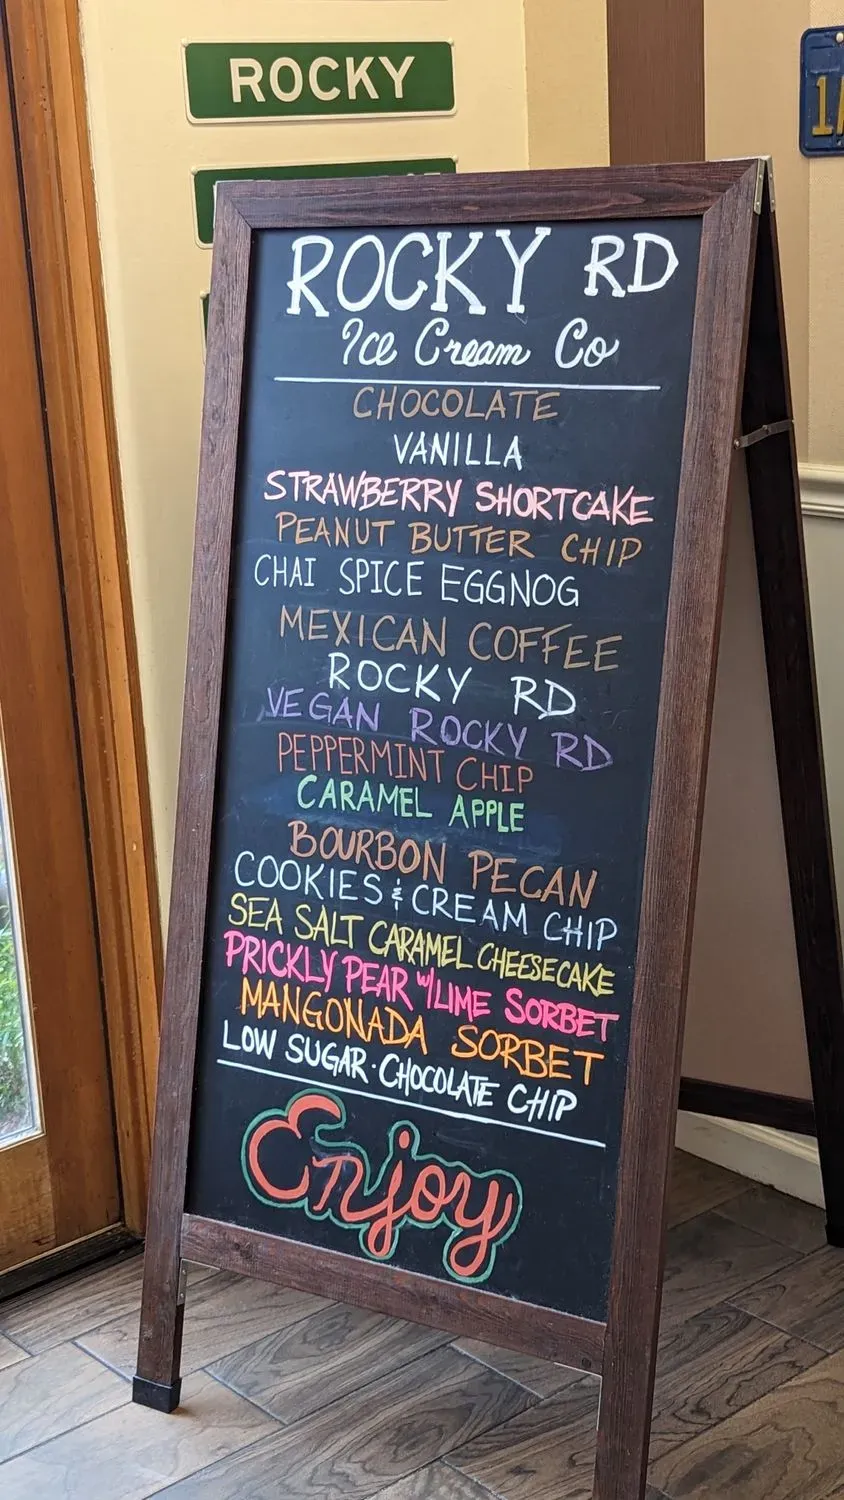 ROCKY
ROCKY RD
Ice Cream Co
CHOCOLATE
VANILLA
STRAWBERRY SHORTCAKE
PEANUT BUTTER CHIP
CHAI SPICE EGGNOG
MEXICAN COFFEE
ROCKY RD
VEGAN ROCKY RD
PEPPERMINT CHIP
CARAMEL APPLE
BOURBON PECAN
COOKIES & CREAM CHIP
SEA SALT CARAMEL CHEESECAKE
PRICKLY PEAR w/LIME SORBET
MANGONADA SORBET
LOW SUGAR · CHOCOLATE CHIP
Enjoy